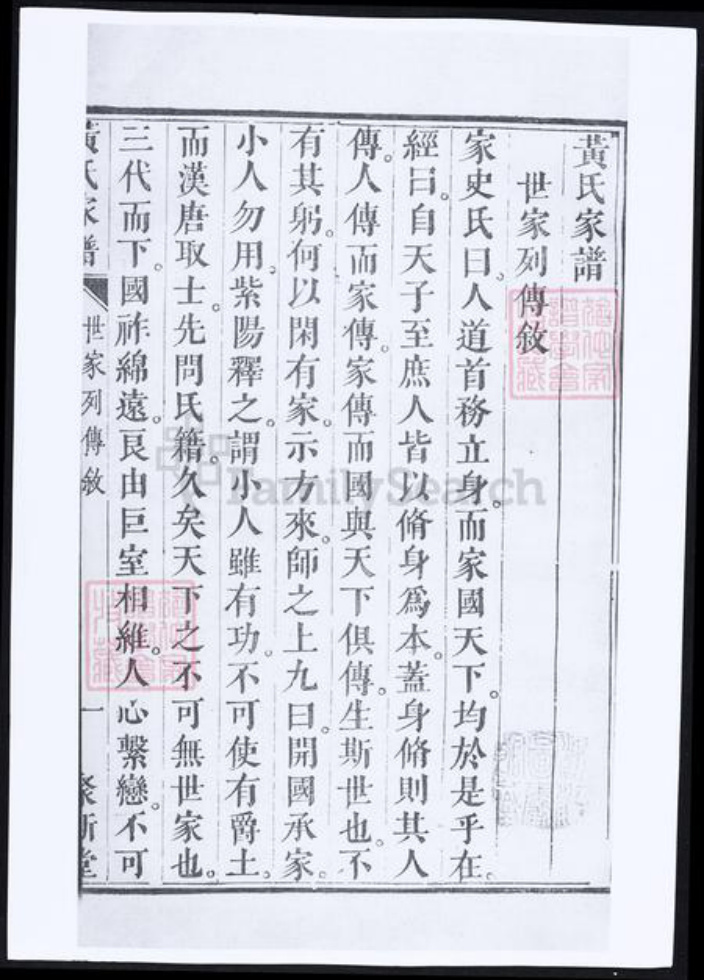 黃氏家譜
世家列傳敘
家史氏曰。人道首務立身。而家國天下。均於是乎在。
經曰。自天子至庶人皆以脩身爲本。蓋身脩則其人
傳。人傳而家傳。家傳而國與天下俱傳。生斯世也。不
有其躬。何以閑有家。示方來。師之上九曰。開國承家。
小人勿用。紫陽釋之。謂小人雖有功。不可使有爵土。
而漢唐取士。先問氏籍。久矣天下之不可無世家也。
三代而下。國祚綿遠。良由巨室相維。人心繫戀。不可
黃氏家譜
世家列傳敘
一
堂
FamilySearch